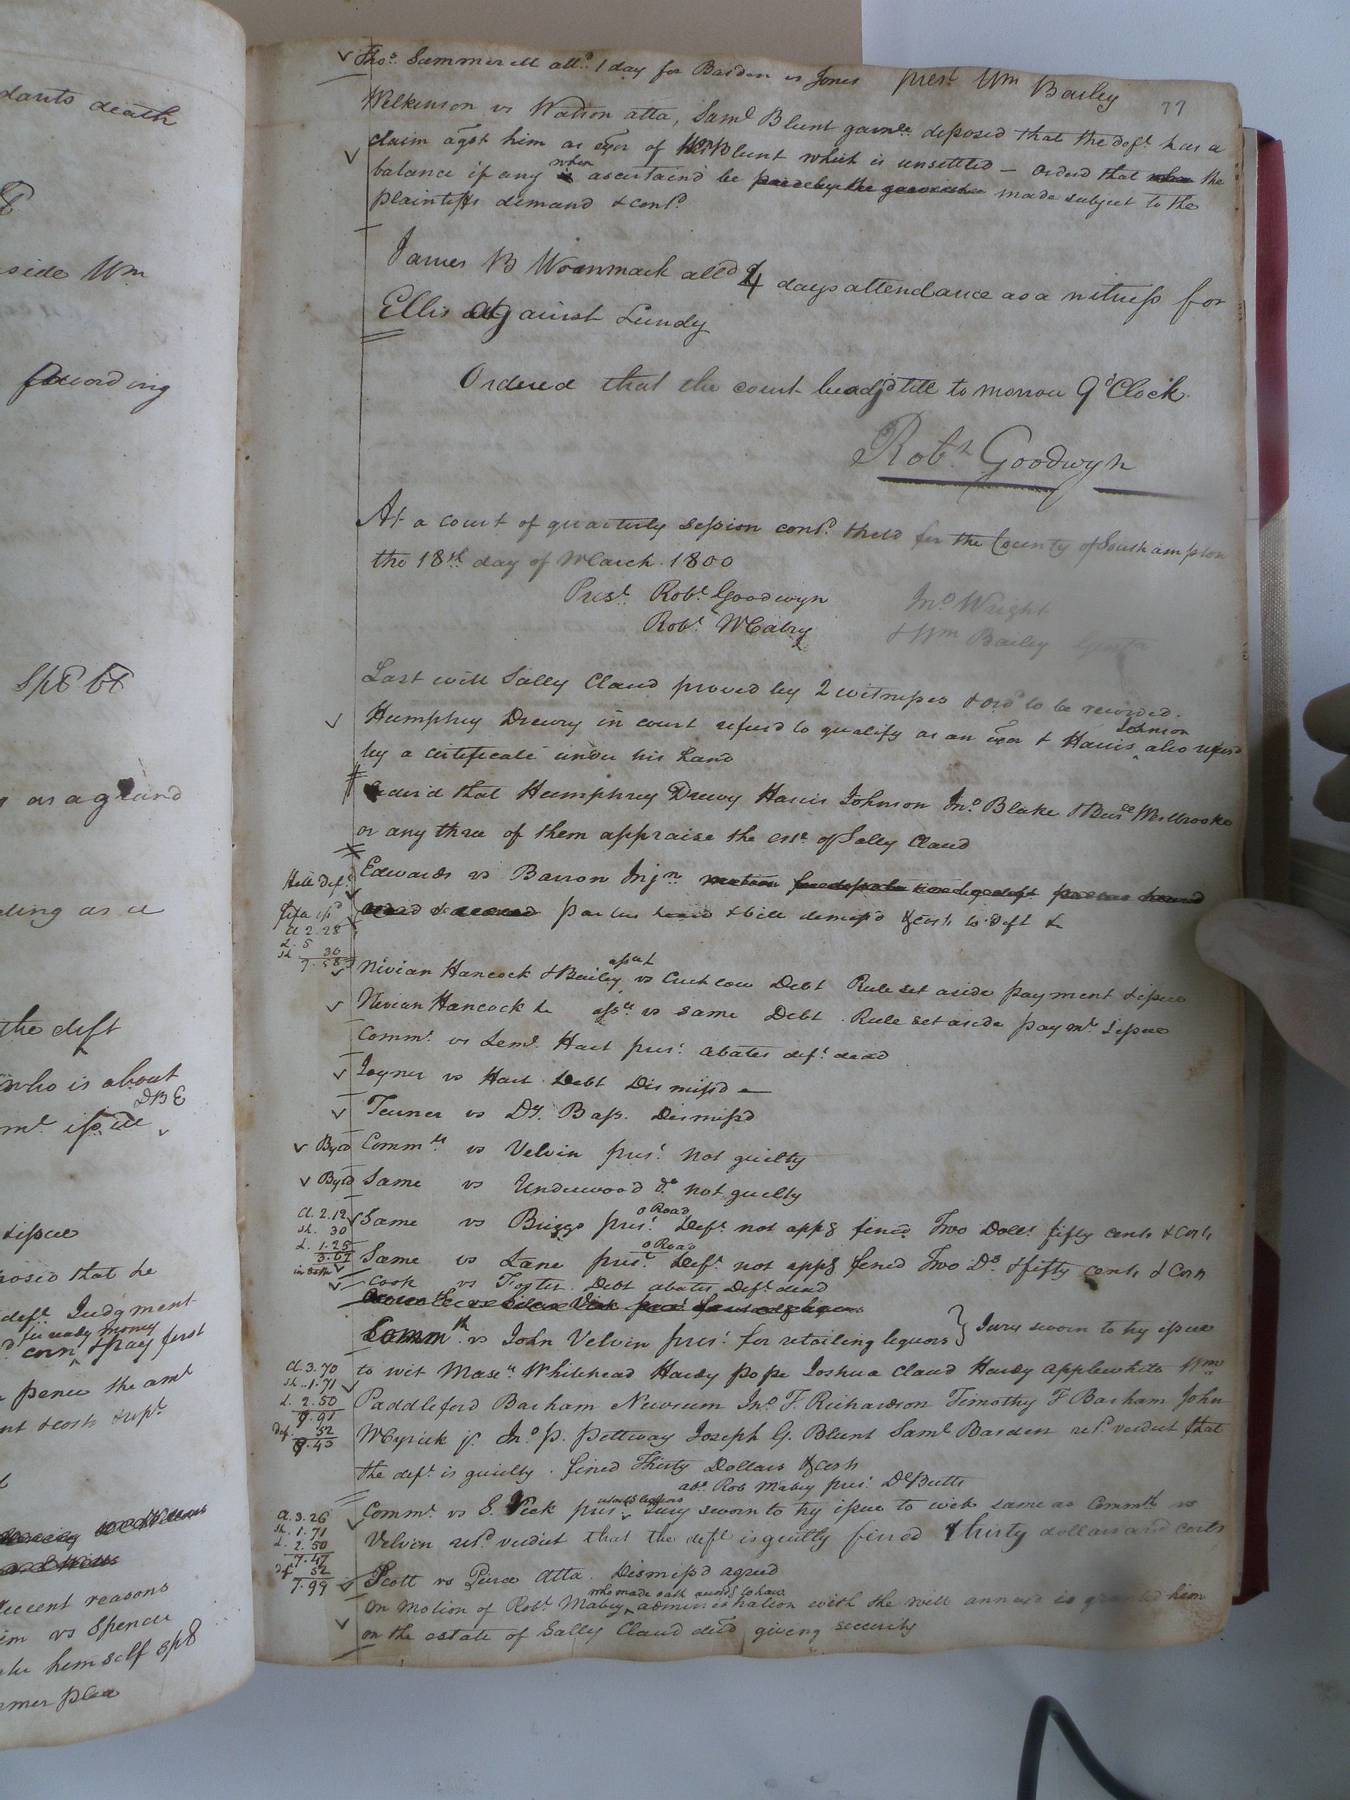 Thos. Summerell alld. 1 day for Barden vs Jones prest. Wm Bailey
77
Wilkinson vs Watson atta, Saml Blunt garnee. deposed that the deft has a
claim agst him as exor of Blunt which is unsettled – ordered that when the
balance if any when ascertaind be paid by the garnishee made subject to the
plaintiffs demand & contd.
James B Woommack alld 4 days attendance as a witness for
Ellis against Lundy
Ordered that the court be adjd till to morrow 9 oClock.
Robt. Goodwyn
At a court of quarterly session contd. & held for the County of Southampton
the 18th day of March. 1800
Prest. Robt. Goodwyn Jno Wright
Robt. Mabry & Wm Bailey Gent
Last will Sally Claud proved by 2 witnesses & ord to be recorded.
Humphrey Drewry in court refusd to qualify as an exor & Harris Johnson also refusd
by a certificate under his hand
Orderd that Humphrey Drewry Harris Johnson Jno. Blake & Westbrooke
or any three of them appraise the est. of Sally Claud
Edwards vs Barron Injn
parties heard & bill dismissd & costs to deft
Nivian Hancock & Bailey vs Debt Rule set aside payment & issue
Nivian Hancock vs same Debt. Rule set aside paymt. & issue
Commt. vs Leml. Hart prest. abates deft. dead
Joyner vs Hart Debt Dismissd
Turner vs Dy. Bass. Dismissd
Byrd Commth vs Velvin prest. not guilty
Byrd Same vs Underwood do not guilty
Same vs Briggs prest. o Road Deft. not appg fined Two Dolls fifty cents & Costs
Same vs Lane prest. o Road Deft. not appg fined Two Do. & fifty cents & Costs
Cook vs Foster. Debt abates Deft. dead
Commth. vs John Velvin prest. for retailing liquors } Jury sworn to try issue
to wit Whitehead Hardy Pope Joshua Claud Hardy Applewhite Wm
Paddleford Barham Newsum Jno. T. Richardson Timothy F Barham John
Myrick jr. Jno P. Pettway Joseph G. Blunt Saml Barden retd. verdict that
the deft. is guilty. fined Thirty Dollars & costs
abt. Rob Mabry prest. D Butts
Commt. vs S. Vick prest. retailg liquors Jury sworn to try issue to wit same as Commth vs
Velvin retd. verdict that the deft is guilty fined thirty dollars and costs
Scott vs Atta. Dismissd agreed
On motion of Robt. Mabry who made oath administration with the will annexd is granted him
on the estate of Sally Claud decd giving security
C. 2.28
L. 5
Sh. 30
7.58
C. 2.12
Sh. 30
L. 1.25
3.67
C. 3.70
Sh. 1.71
L. 2.50
C. 3.26
Sh. 1.71
L. 2.50
7.47
52
7.99
dants death
side Wm
according
as a
ding as a
the deft
who is about
DBE
& issue
posed that he
deft. Judgment
in ready money
& pay first
pence the amt
nt & costs & rept.
reasons
im vs Spencer
himself
former plea